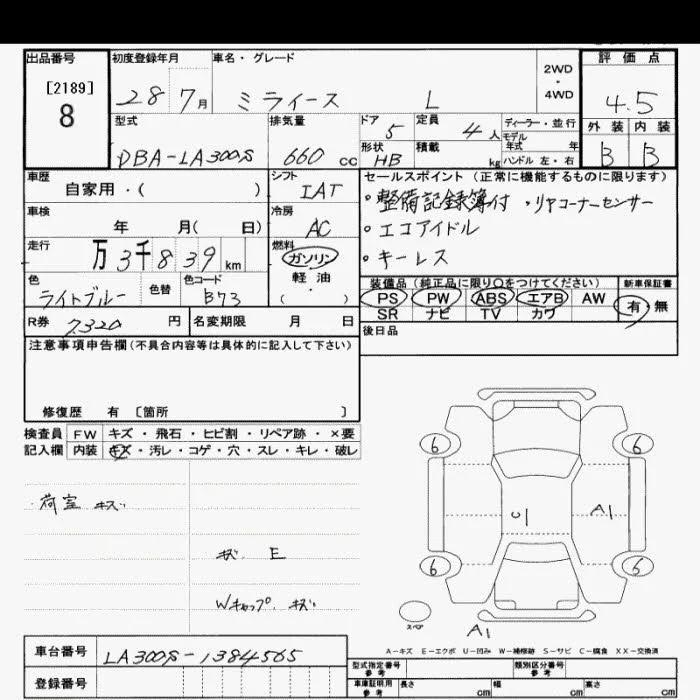 出品番号
[2189]
8
初度登録年月
28 7月
車名・グレード
ミライース L
2WD
・
4WD
評価点
4.5
外装 内装
B B
型式
DBA-LA300S
排気量
660 cc
ドア 5
形状 HB
定員 4人
積載 kg
ディーラー・並行
モデル
年式 年
ハンドル 左・右
車歴
自家用・( )
シフト
IAT
セールスポイント (正常に機能するものに限ります)
・整備記録簿付 ・リヤコーナーセンサー
・エコアイドル
・キーレス
車検
年 月( 日)
冷房
AC
走行
万3千839km
燃料
ガソリン
軽油
・
( )
色
ライトブルー
色替
色コード
B73
装備品 (純正品に限り○をつけてください)
PS PW ABS エアB AW
SR ナビ TV カワ
新車保証書
有・無
R券 7320 円
名変期限 月 日
後日品
注意事項申告欄(不具合内容等は具体的に記入して下さい)
修復歴 有 〔箇所 〕
検査員 FW キズ・飛石・ヒビ割・リペア跡・×要
記入欄 内装 キズ・汚レ・コゲ・穴・スレ・キレ・破レ
・荷室 キズ
キズ E
Wキャップ キズ
6 6
U1 A1
6 6
スペア
A1
A-キズ E-エクボ U-凹み W-補修跡 S-サビ C-腐食 XX-交換済
車台番号 LA300S-1384565
登録番号
型式指定番号
参考
類別区分番号
参考
車庫証明用
参考
長さ cm 幅 cm 高さ cm